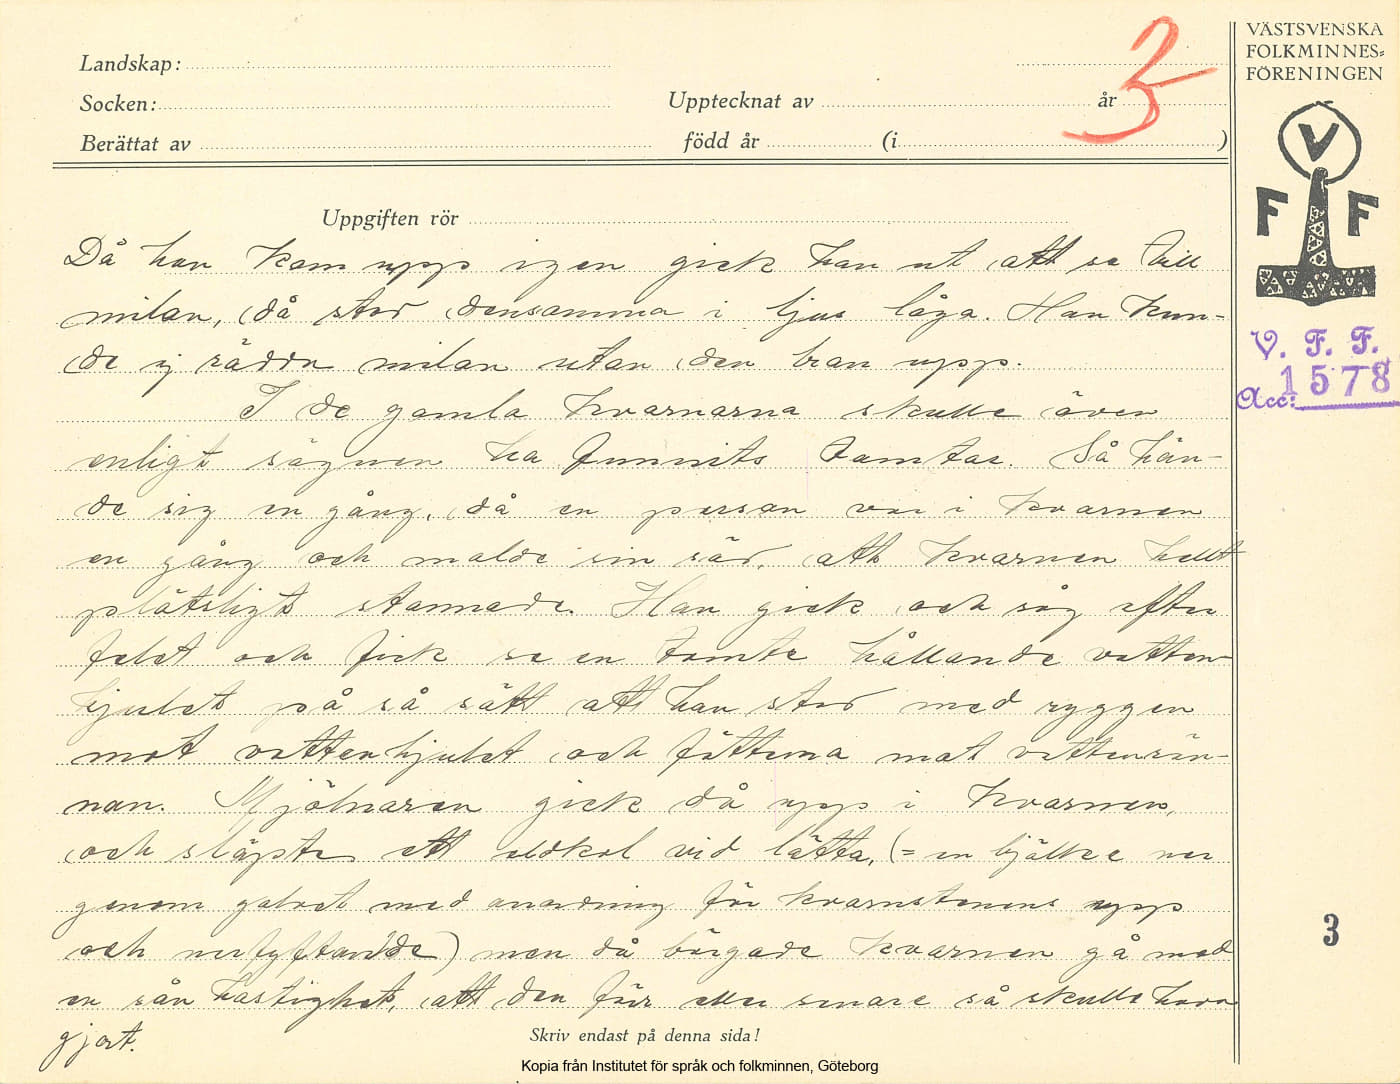 Landskap:
Socken:
Upptecknat av
år
Berättat av
född år
(i
)
3
VÄSTSVENSKA
FOLKMINNES=
FÖRENINGEN
V
F F
V. F. F.
Acc: 1578
Uppgiften rör
Då han kom upp igen gick han ut att se till
milan, då stod densamma i ljus låga. Han kun-
de ej rädda milan utan den bran upp.
I de gamla kvarnarna skulle även
enligt sägnen ha funnits tomtar. Så hän-
de sig en gång, då en person var i kvarnen
en gång och malde sin säd, att kvarnen helt
plötsligt stannade. Han gick och såg efter
felet och fick se en tomte hållande vatten-
hjulet på så sätt att han stod med ryggen
mot vattenhjulet och fötterna mot vattenrän-
nan. Mjölnaren gick då upp i kvarnen,
och släpte ett eldkol vid lätta, (= en bjälke ner
genom golvet med anordning för kvarnstenens upp
och nerlyftande) men då börgade kvarnen gå med
en sån hastighet, att den för eller senare så skulle hava
gjort.
3
Skriv endast på denna sida!
Kopia från Institutet för språk och folkminnen, Göteborg